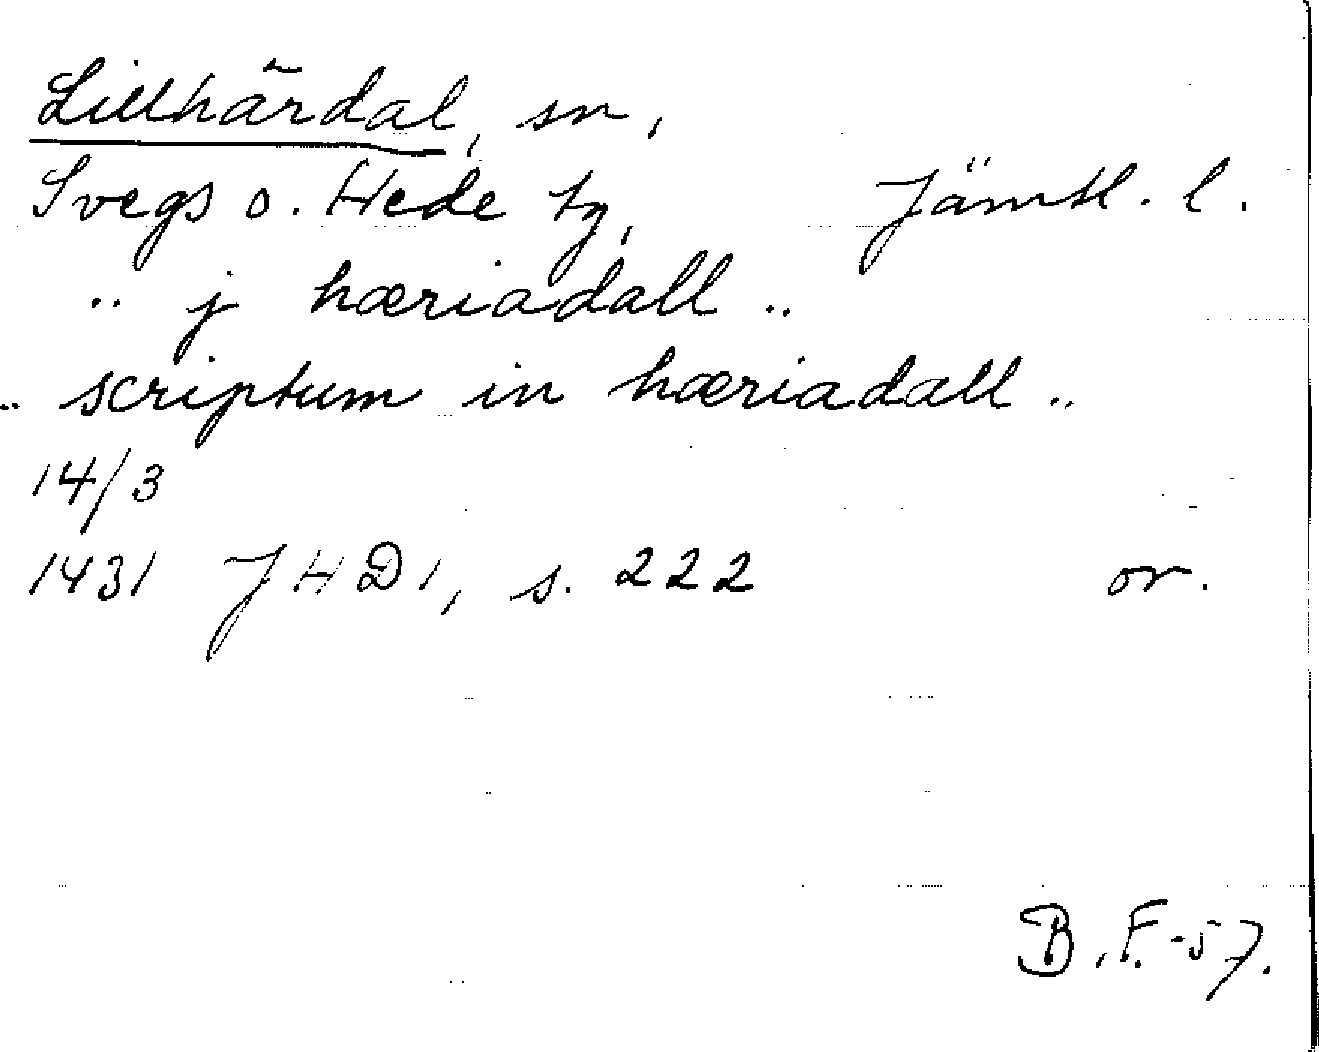 Lillhärdal, sn,
Svegs o. Hede tg, Jämtl. l.
.. j hæriadall ..
.. scriptum in hæriadall ..
14/3
1431 JHD1, s. 222 or.
B.F.-57.